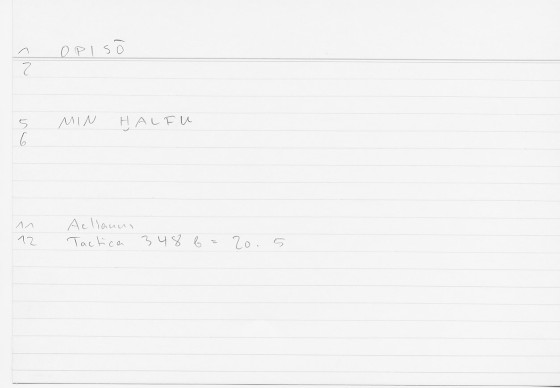 1 OPISŌ
2
5 MIN ḤALFU
6
11 Aelianus
12 Tactica 348 b = 20. 5